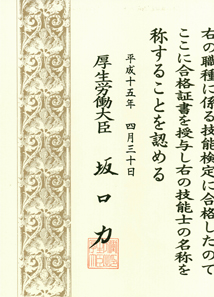 右の職種に係る技能検定に合格したので
ここに合格証書を授与し右の技能士の名称を
称することを認める
平成十五年 四月三十日
厚生労働大臣 坂口力